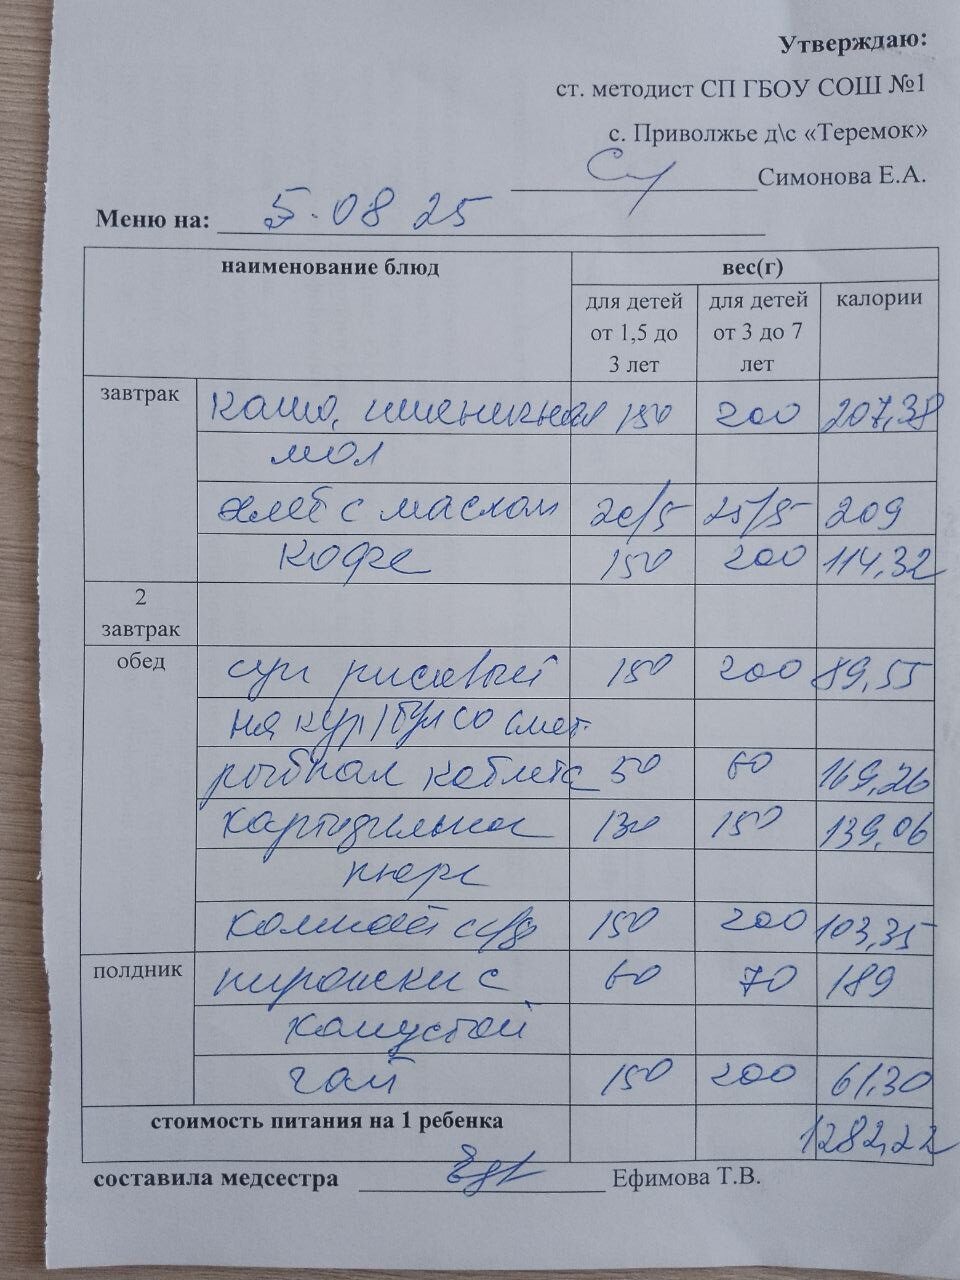 Утверждаю:
ст. методист СП ГБОУ СОШ №1
с. Приволжье д\с «Теремок»
Симонова Е.А.
Меню на: 5.08 25
наименование блюд вес(г)
для детей от 1,5 до 3 лет для детей от 3 до 7 лет калории
завтрак каша пшеничная 150 200 207,38
мол
хлеб с маслом 20/5 25/5 209
кофе 150 200 114,32
2 завтрак
обед суп рисовый 150 200 89,55
на кур/бул со смет.
рыбная котлета 50 60 169,26
картофельное 130 150 139,06
пюре
компот с/ф 150 200 103,35
полдник пирожки с 60 70 189
капустой
чай 150 200 61,30
стоимость питания на 1 ребенка 1282,22
составила медсестра Ефимова Т.В.